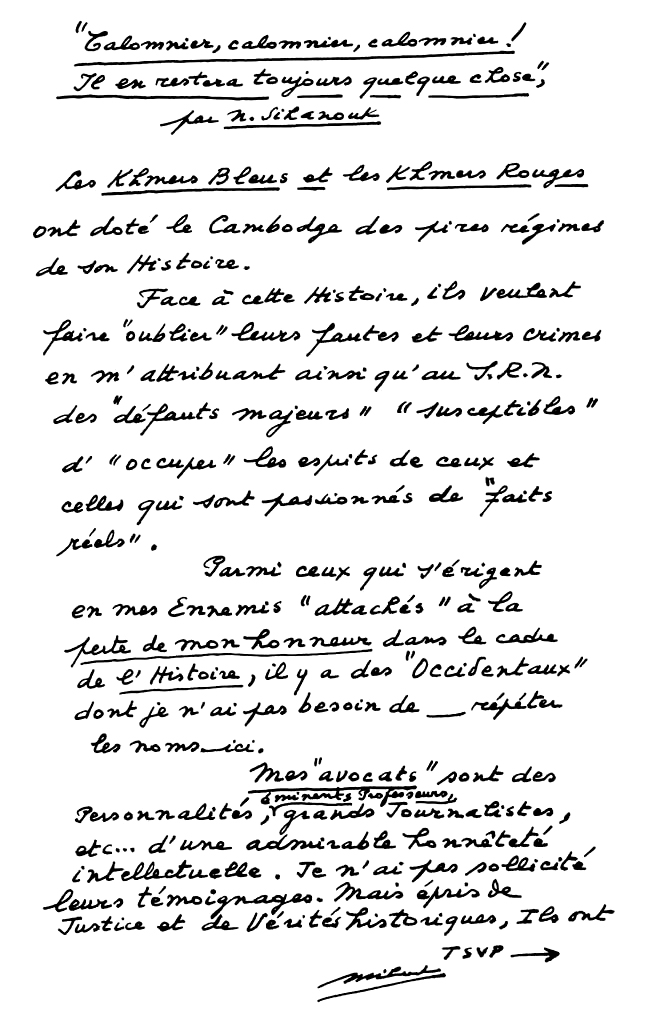 "Calomnier, calomnier, calomnier!
Il en restera toujours quelque chose",
par N. Sihanouk
Les Khmers Bleus et les Khmers Rouges
ont doté le Cambodge des pires régimes
de son Histoire.
Face à cette Histoire, ils veulent
faire "oublier" leurs fautes et leurs crimes
en m'attribuant ainsi qu'au S.R.N.
des "défauts majeurs" "susceptibles"
d' "occuper" les esprits de ceux et
celles qui sont passionnés de "faits
réels".
Parmi ceux qui s'érigent
en mes Ennemis "attachés" à la
perte de mon honneur dans le cadre
de l'Histoire, il y a des "Occidentaux"
dont je n'ai pas besoin de __ répéter
les noms ici.
Mes "avocats" sont des
éminents Professeurs,
Personnalités, grands Journalistes,
etc... d'une admirable honnêteté
intellectuelle. Je n'ai pas sollicité
leurs témoignages. Mais épris de
Justice et de Vérités historiques, Ils ont
TSVP →